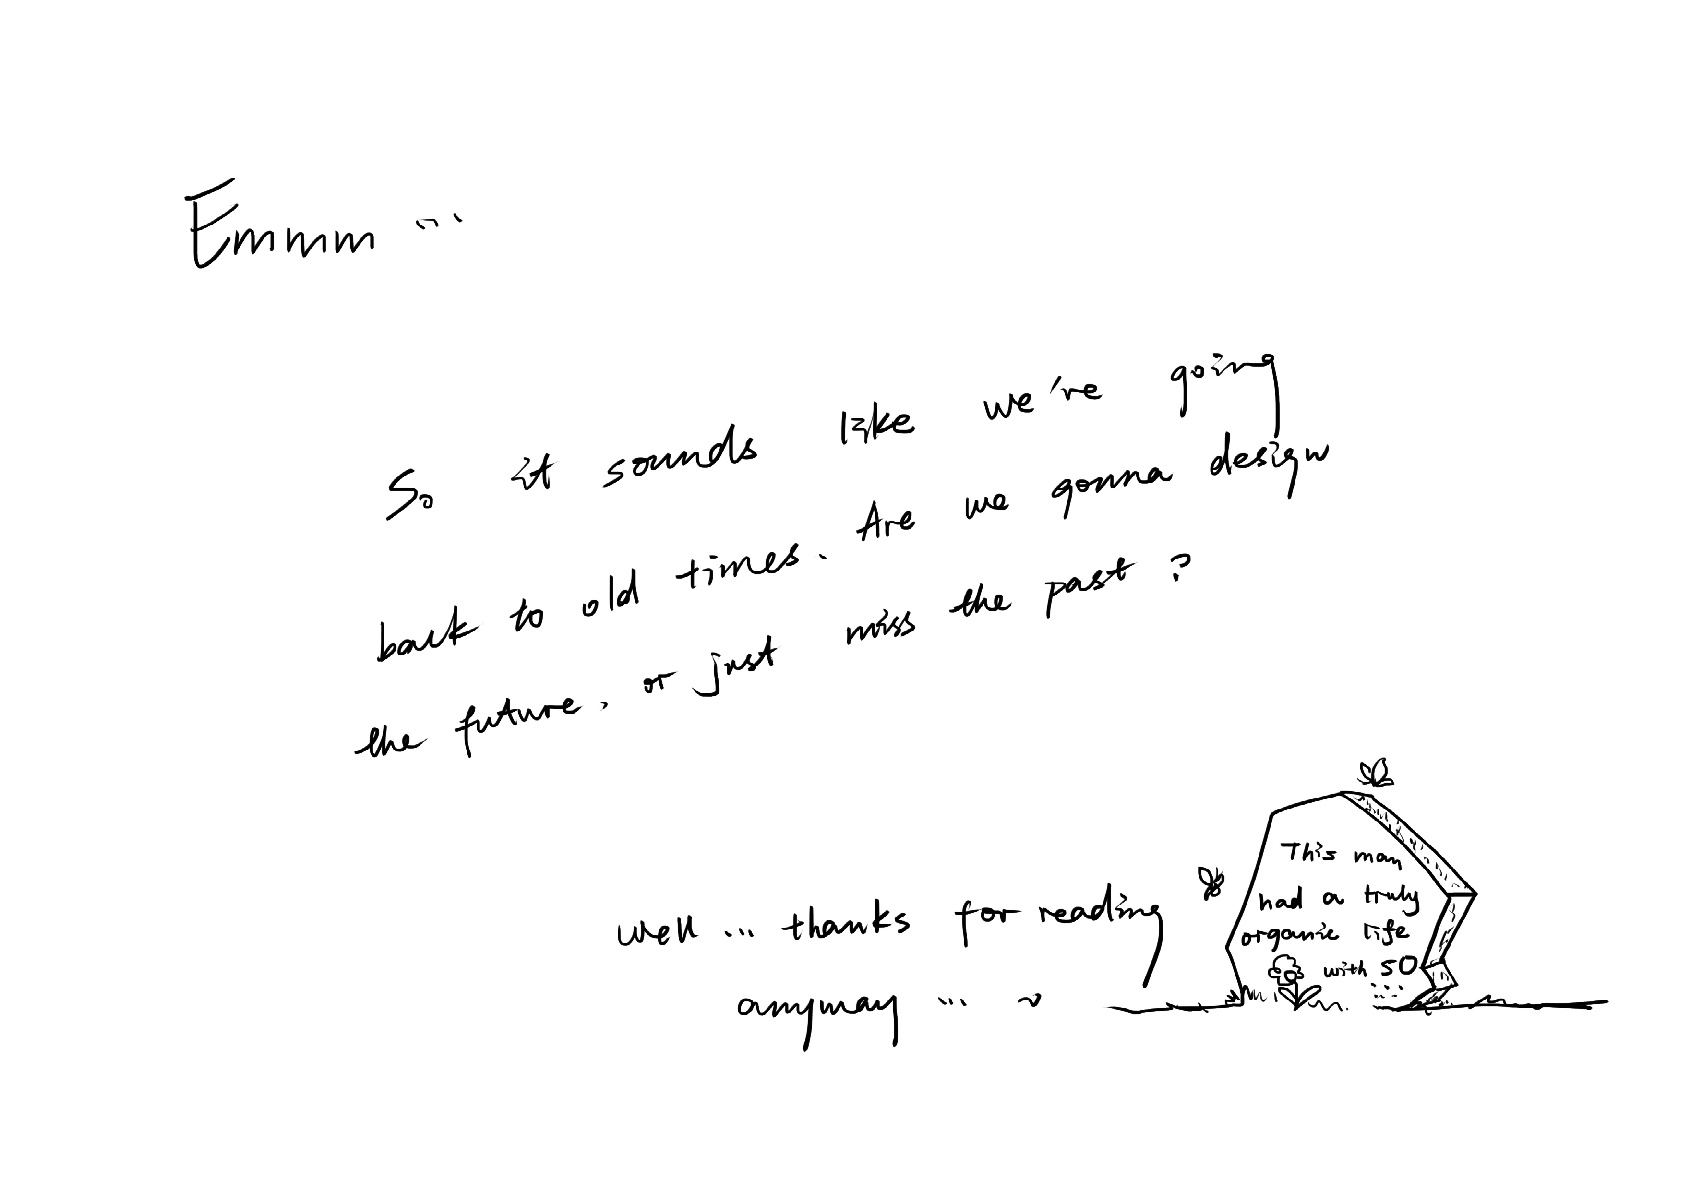 Emmm ...
So it sounds like we're going
back to old times. Are we gonna design
the future, or just miss the past?
Well ... thanks for reading
anyway ... ~
This man
had a truly
organic life
with SO